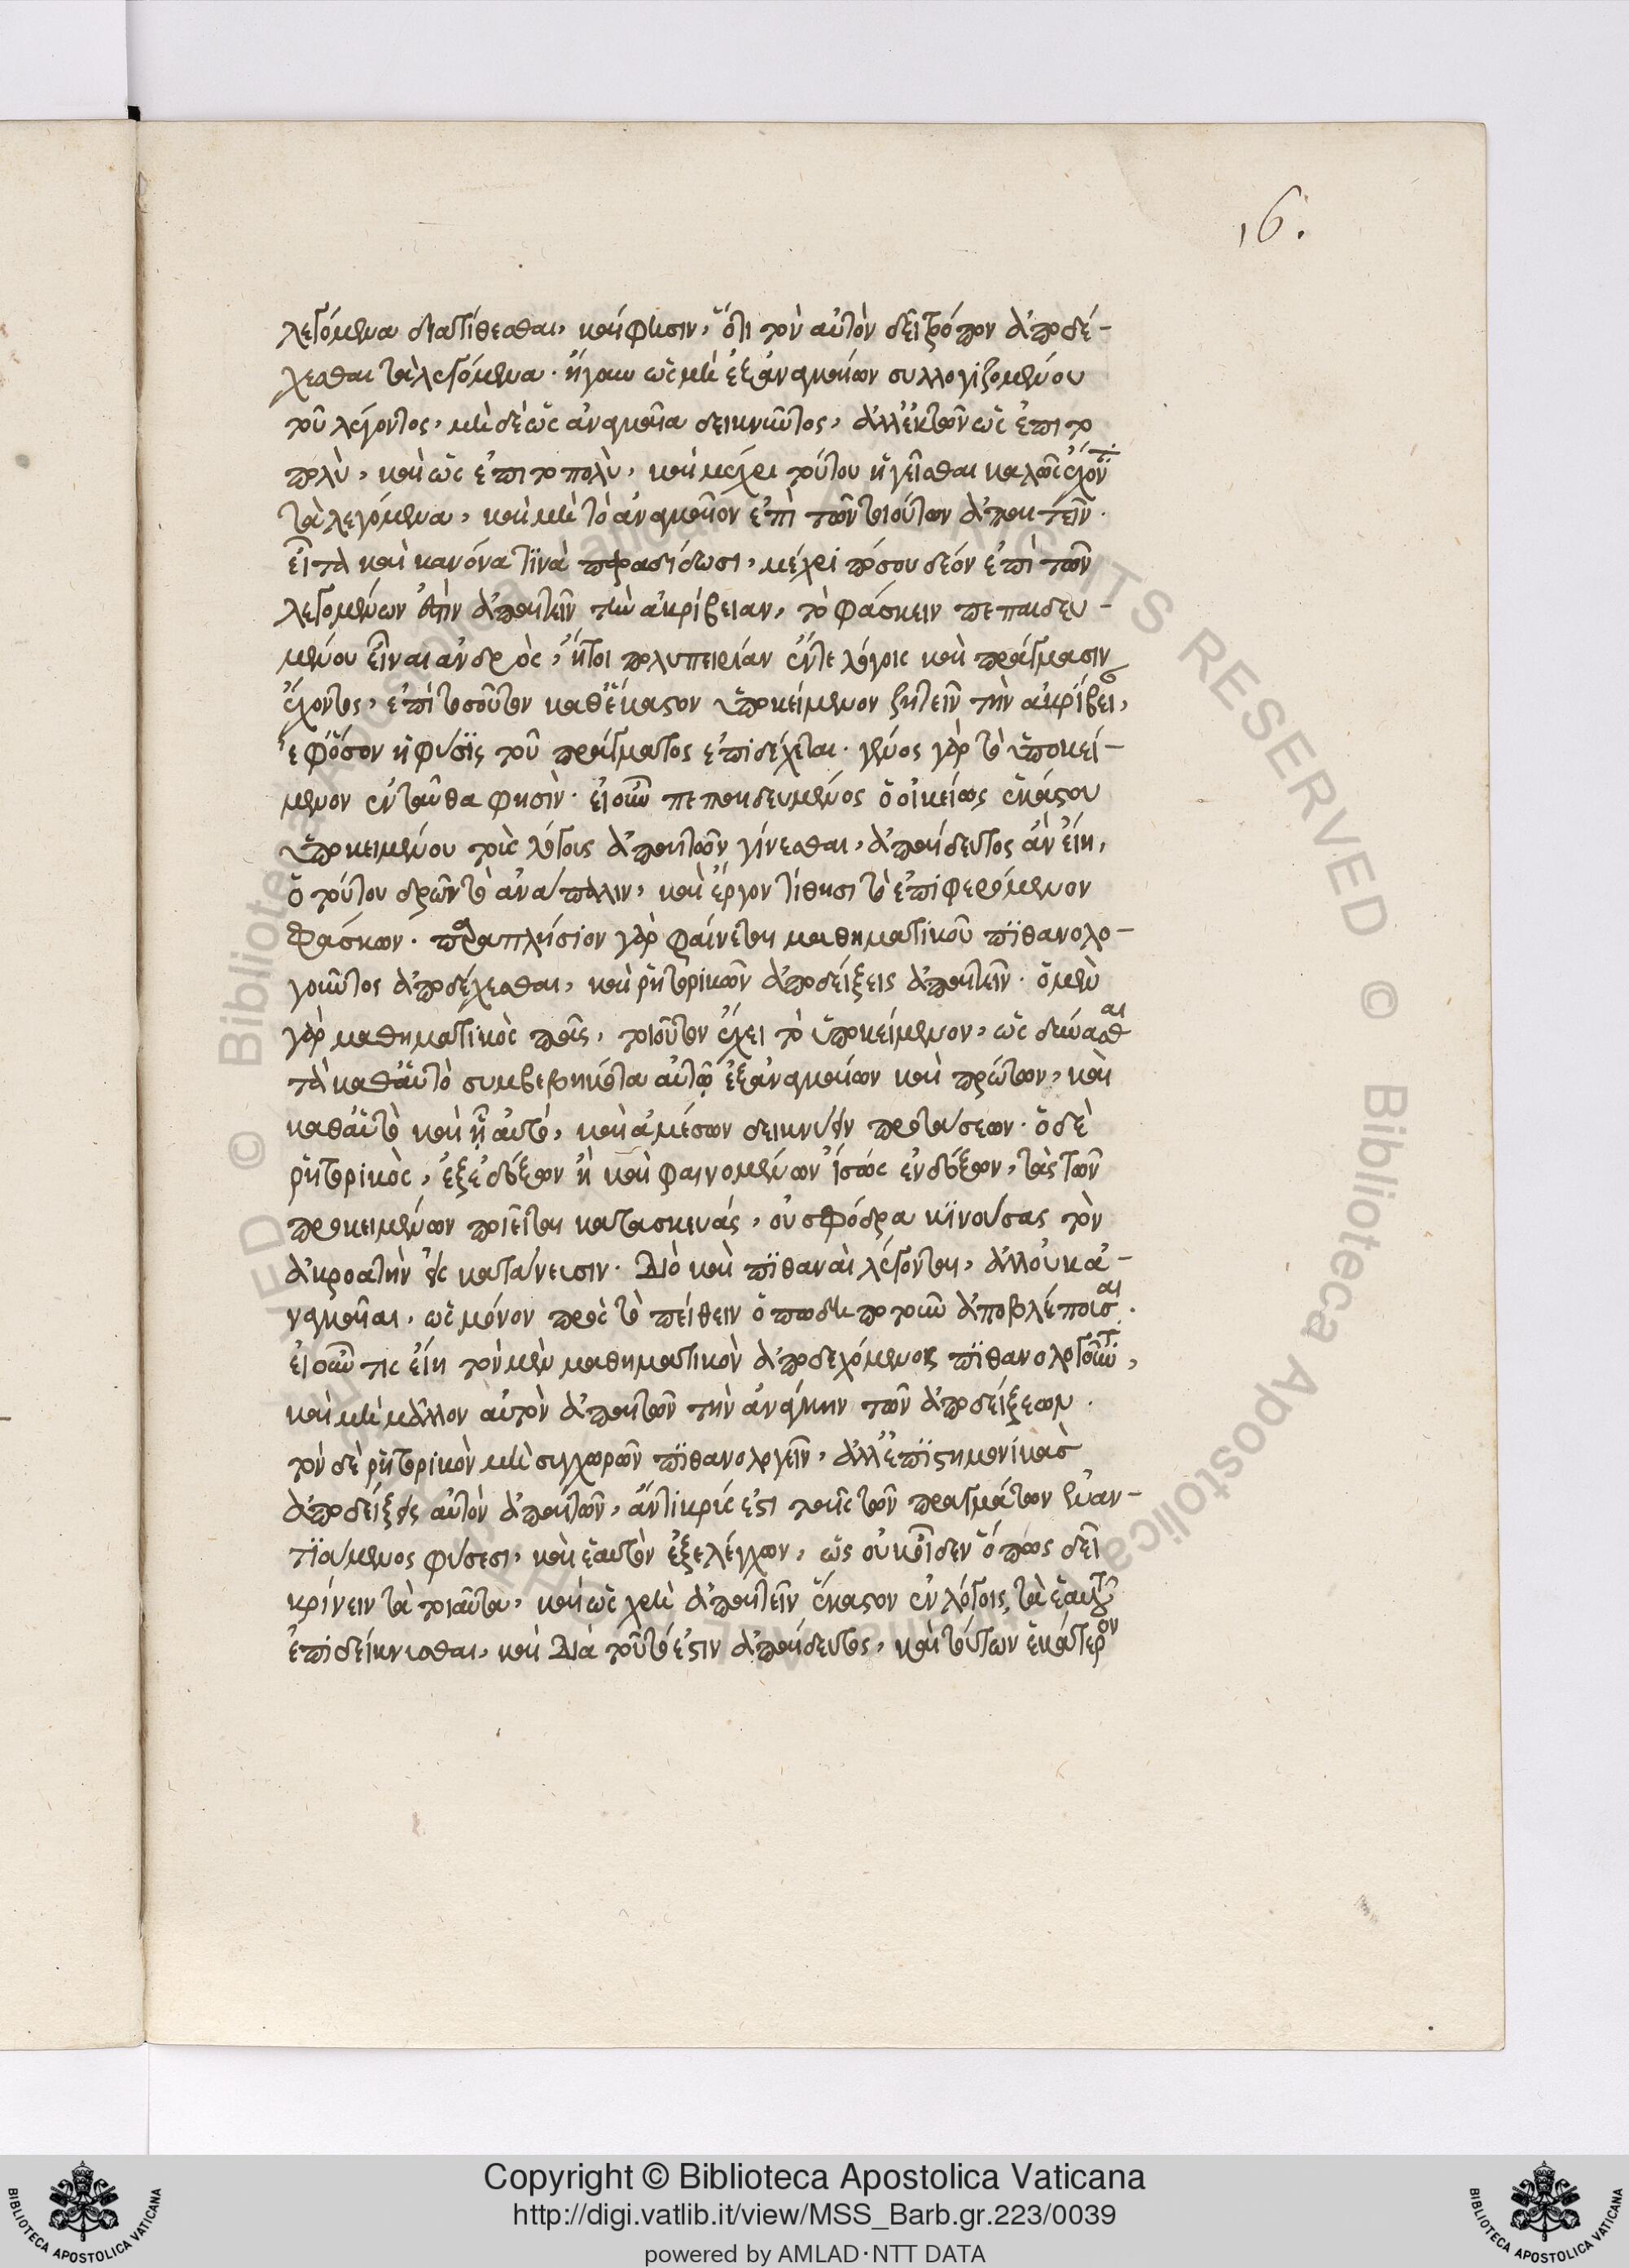 16.
λεγόμενα διατίθεσθαι, καί φησιν, ὅτι τὸν αὐτὸν δεῖ τρόπον ἀποδέ-
χεσθαι τὰ λεγόμενα. ἤγουν ὡς μὴ ἐξ ἀναγκαίων συλλογιζομένου
τοῦ λέγοντος, μὴ δὲ ὡς ἀναγκαῖα δεικνῦντος, ἀλλ' ἐκ τῶν ὡς ἐπιτο
πολὺ, καὶ ὡς ἐπιτοπολὺ, καὶ μέχρι τούτου ἡγεῖσθαι καλῶς ἔχοντα
τὰ λεγόμενα, καὶ μὴ τὸ ἀναγκαῖον ἐπὶ τῶν τοιούτων ἀπαιτεῖν.
εἶτα καὶ κανόνα τινὰ παραδίδωσι, μέχρι πόσου δέον ἐπὶ τῶν
λεγομένων ἐστὶν ἀπαιτεῖν τὴν ἀκρίβειαν, τὸ φάσκειν πεπαιδευ-
μένου εἶναι ἀνδρὸς, ἤτοι πολυπειρίαν ἔν τε λόγοις καὶ πράγμασιν
ἔχοντος, ἐπὶ τοσοῦτον καθ' ἕκαστον ὑποκείμενον ζητεῖν τὴν ἀκρίβειαν,
ἐφ' ὅσον ἡ φύσις τοῦ πράγματος ἐπιδέχεται. γένος γὰρ τὸ ὑποκεί-
μενον ἐνταῦθα φησὶν. εἰ οὖν πεπαιδευμένος ὁ οἰκείως ἑκάστου
ὑποκειμένου τοὺς λόγους ἀπαιτῶν γίνεσθαι, ἀπαίδευτος ἂν εἴη,
ὁ τούτου δρῶν τὸ ἀνάπαλιν, καὶ ἔργον τίθησι τὸ ἐπιφερόμενον
φάσκων. παραπλήσιον γὰρ φαίνεται μαθηματικοῦ πιθανολο-
γοῦντος ἀποδέχεσθαι, καὶ ῥητορικῶν ἀποδείξεις ἀπαιτεῖν. ὁ μὲν
γὰρ μαθηματικὸς παῖς, τοιοῦτον ἔχει τὸ ὑποκείμενον, ὡς δύνασθαι
τὰ καθ' αὑτὸ συμβεβηκότα αὐτῷ ἐξ ἀναγκαίων καὶ πρώτων, καὶ
καθ' αὑτὸ καὶ ᾗ αὐτό, καὶ ἀμέσων δεικνύειν προτάσεων. ὁ δὲ
ῥητορικὸς, ἐξ ἐνδόξων ἢ καὶ φαινομένων ἴσως ἐνδόξων, τὰς τῶν
προκειμένων ποιεῖται κατασκευάς, οὐ σφόδρα κινούσας τὸν
ἀκροατὴν εἰς κατάνευσιν. Διὸ καὶ πιθαναὶ λέγονται, ἀλλ' οὐκ ἀ-
ναγκαῖαι, ὡς μόνον πρὸς τὸ πείθειν ὁπωδηποτοῦν ἀποβλέπουσαι.
εἰ οὖν τις εἴη τὸν μὲν μαθηματικὸν ἀποδεχόμενος πιθανολογοῦντα,
καὶ μὴ μᾶλλον αὐτὸν ἀπαιτῶν τὴν ἀνάγκην τῶν ἀποδείξεων.
τὸν δὲ ῥητορικὸν μὴ συγχωρῶν πιθανολογεῖν, ἀλλ' ἐπιστημονικὰς
ἀποδείξεις αὐτὸν ἀπαιτῶν, ἄντικρύς ἐστι ταῖς τῶν πραγμάτων ἐναν-
τιούμενος φύσεσι, καὶ ἑαυτὸν ἐξελέγχων, ὡς οὐκ οἶδεν ὅπως δεῖ
κρίνειν τὰ τοιαῦτα, καὶ ὡς χρὴ ἀπαιτεῖν ἕκαστον ἐν λόγοις τὰ ἑαυτοῦ
ἐπιδείκνυσθαι, καὶ Διὰ τοῦτό ἐστιν ἀπαίδευτος, καὶ τούτων ἑκάτερον
Copyright © Biblioteca Apostolica Vaticana
http://digi.vatlib.it/view/MSS_Barb.gr.223/0039
powered by AMLAD·NTT DATA